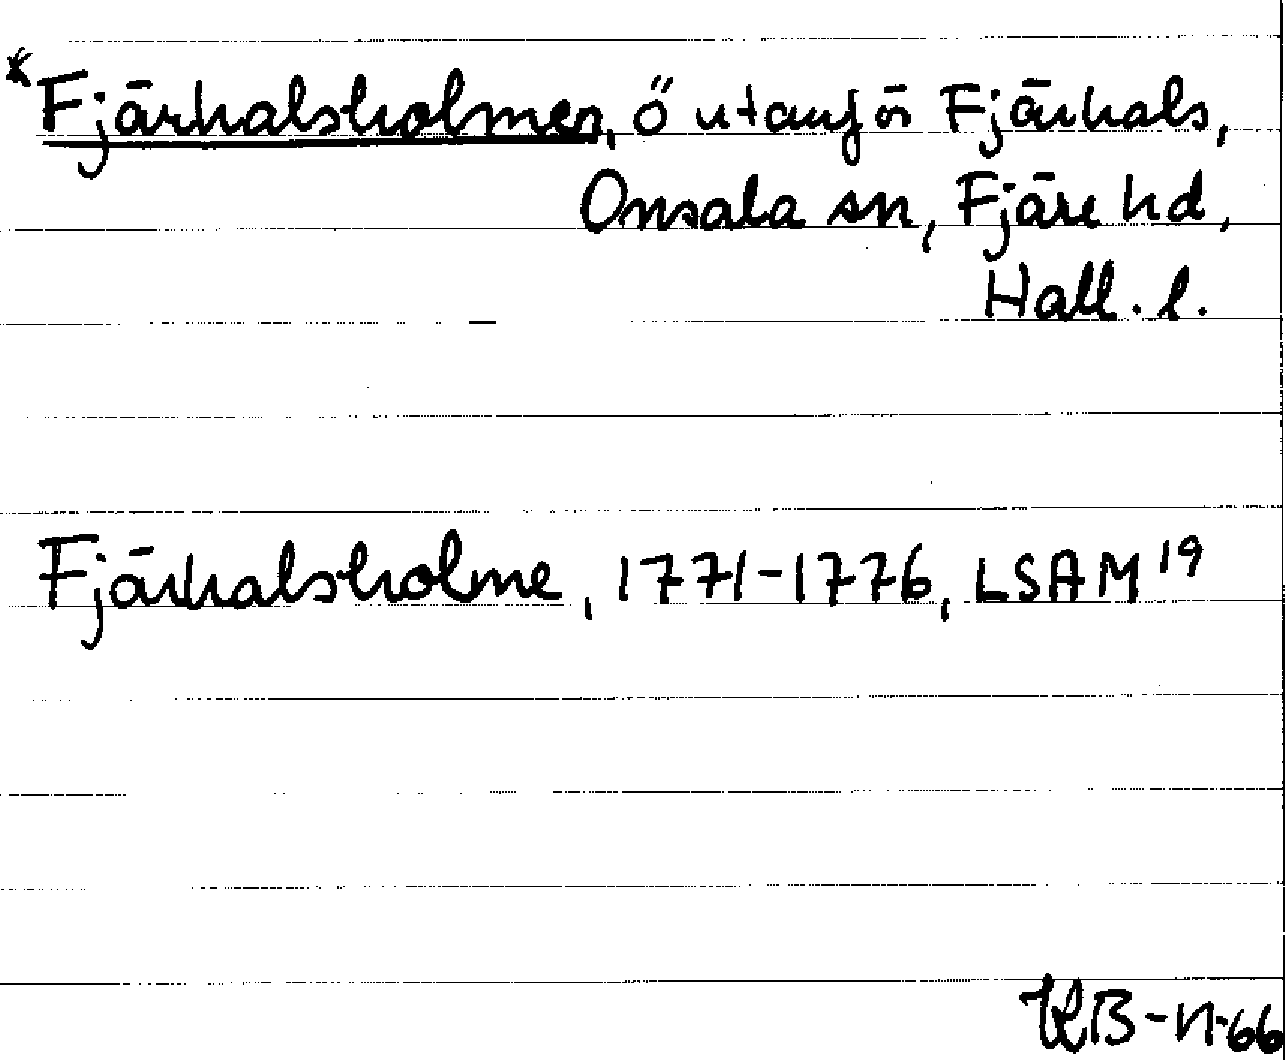 *Fjärhalsholmen, ö utanför Fjärhals,
Onsala sn, Fjäre hd,
Hall. l.
Fjärhalsholme, 1771-1776, LSAM 19